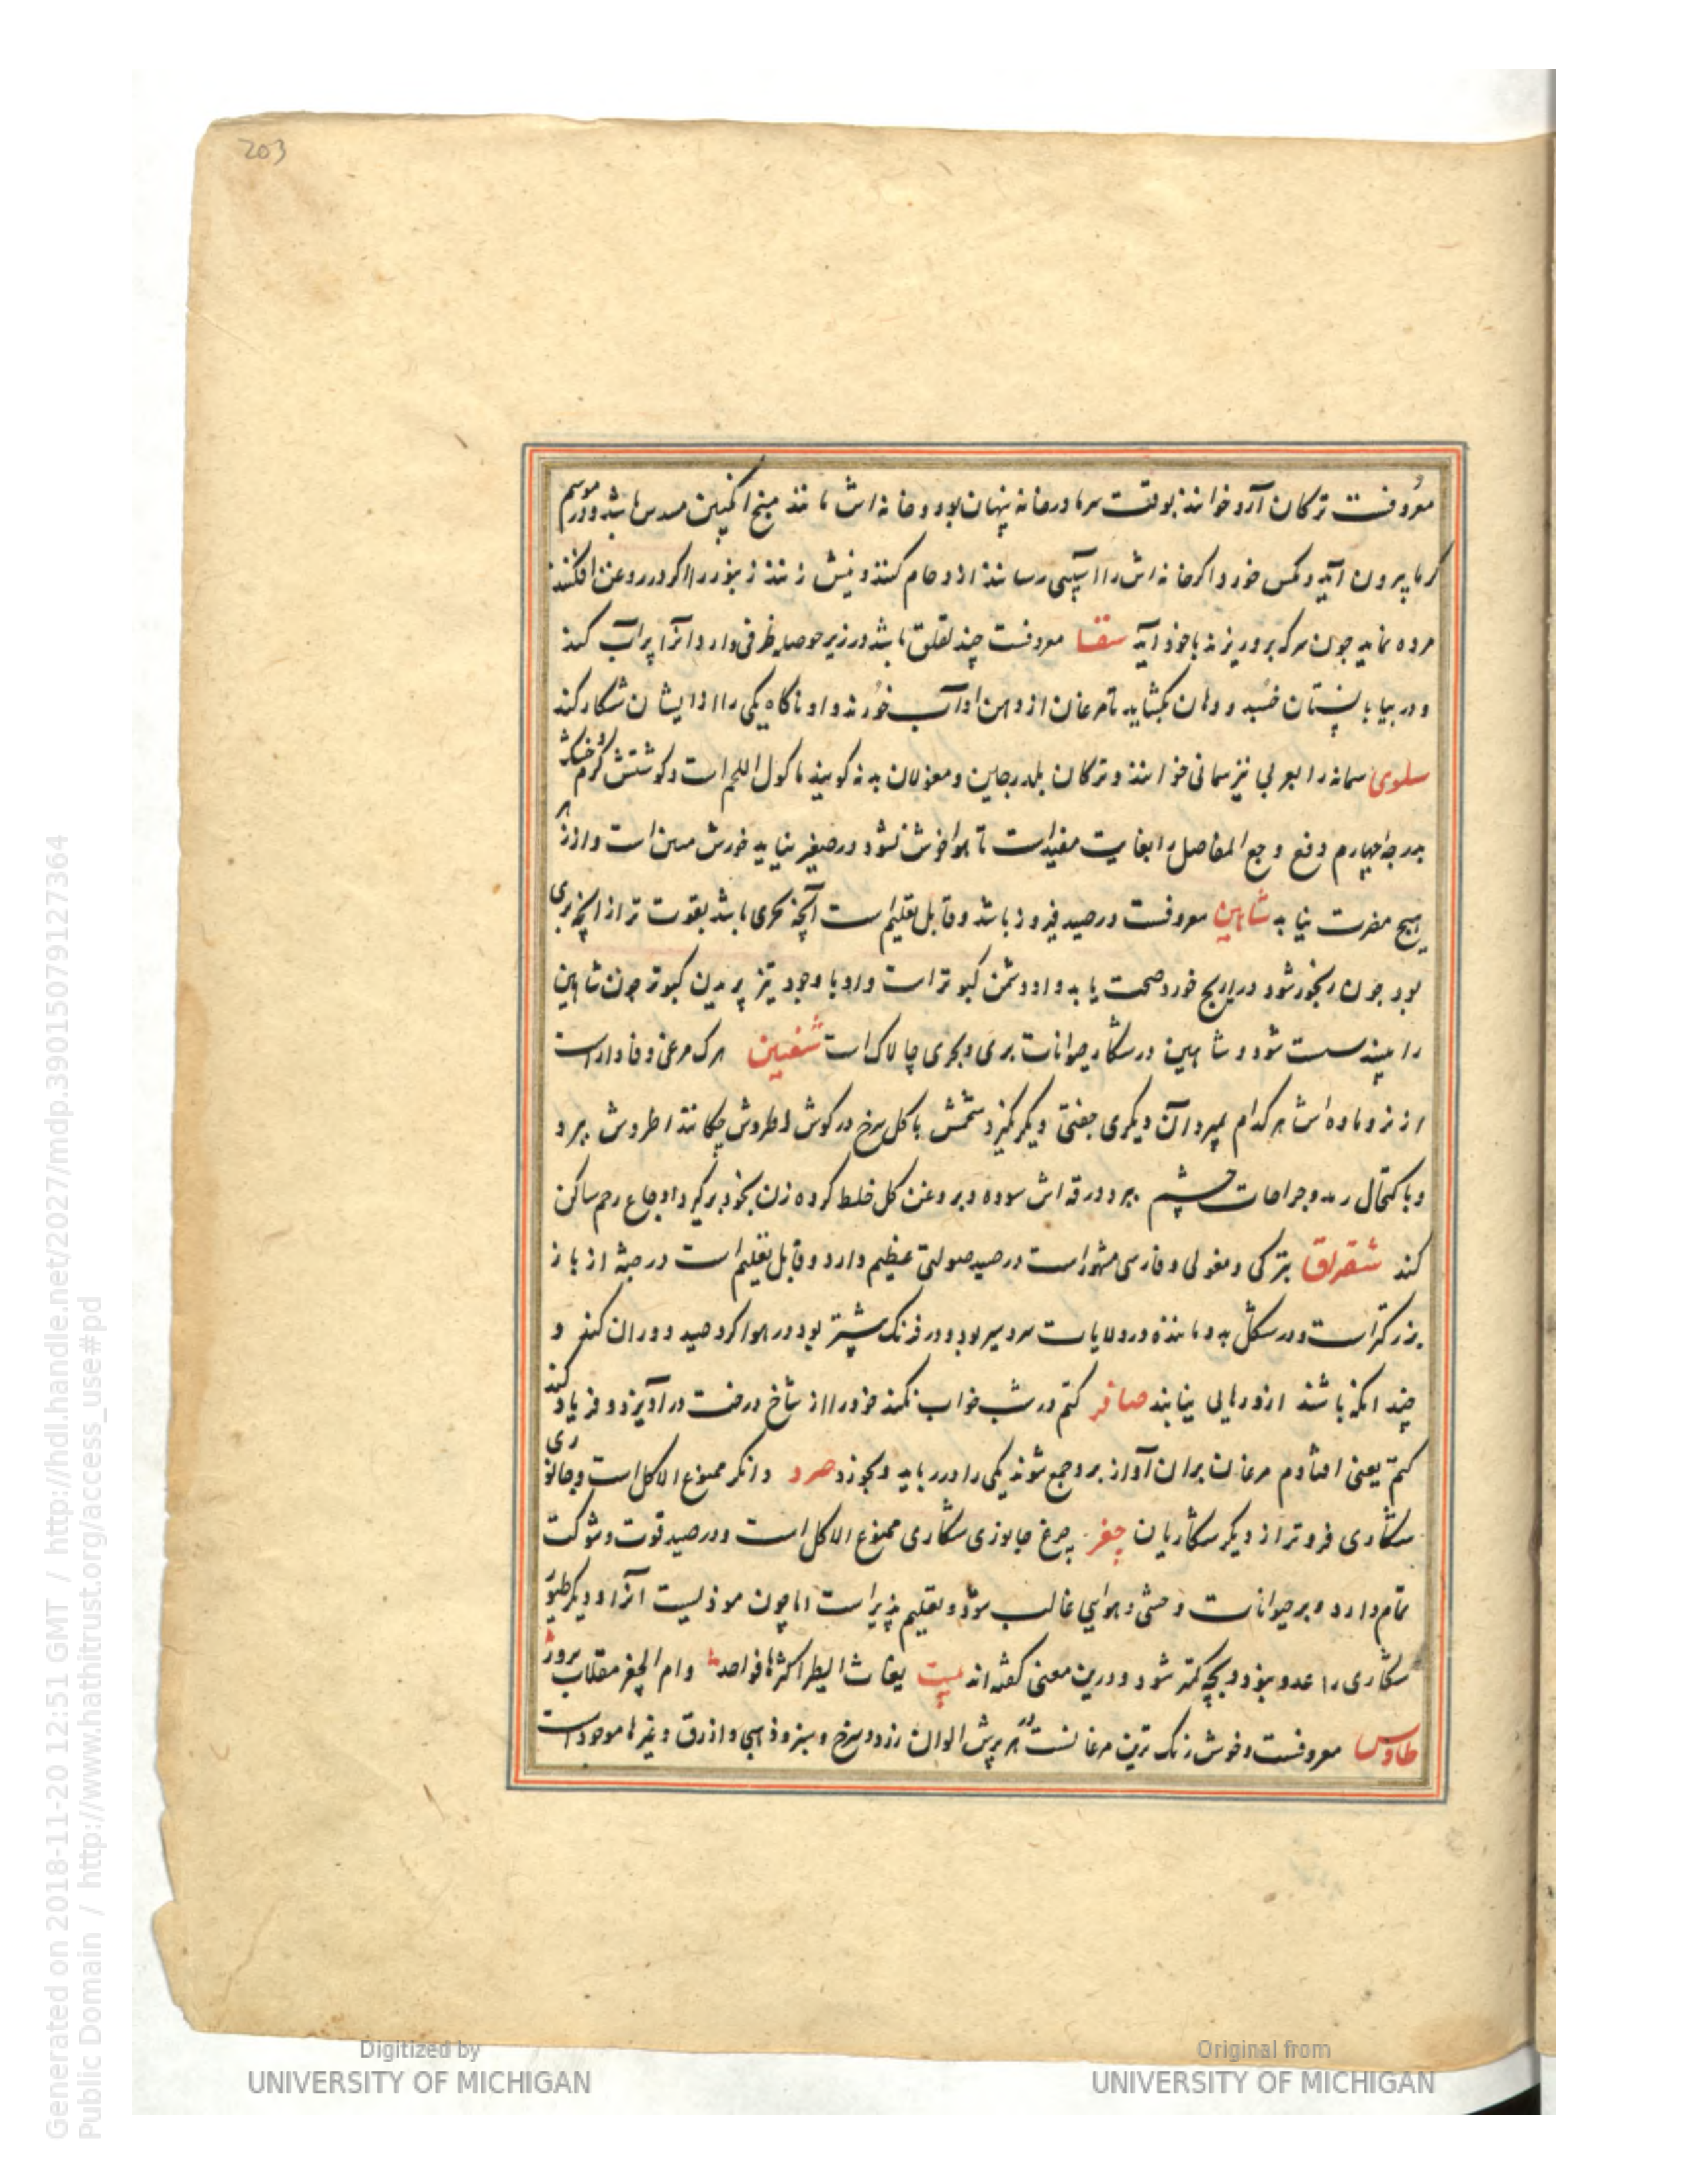 203
معروفست ترکان آرو خوانند بوقت سرما در خانه پنهان بود و خانه اش مانند مبنج انگبین مسدس باشد و در موسم
کرما بیرون آید و مکس خورد و اکر خانه اش را اسیبی رسانند ازدحام کنند و نیش زنند زنبور را اکر در روغن افکنند
مرده نماید جون سرکه برو ریزند باخود آید سقا معروفست چند لقلق باشد در زیر حوصله ظرفی دارد و انرا پر آب کند
و در بیابان خسبد و دهان بکشاید تا مرغان از دهن او آب خورند و او ناکاه یکی را از ایشان شکار کند
سلوی سمانه را بعربی نیز سمانی خوانند و ترکان بلدرجین و مغولان بدنه کویند ماکول اللحم است و کوشتش کرم و خشک
بدرجه چهارم دفع وجع المفاصل را بغایت مفیدست تا هوا خوش نشود در صفیر نیاید خورش مسن است و از زهر
هیچ مضرت نیابد شاهین معروفست در صید فیروز باشد و قابل تعلیم است آنچه بحری باشد بقوت تر از انچه بری
بود جون رنجور شود دراریج خورد صحت یابد و او دشمن کبوتر است و او با وجود تیز پریدن کبوتر جون شاهین
را بیند سست شود و شاهین در شکار حیوانات بری و بحری چالاک است شفنین هرک مرغی وفادار است
از نر و ماده اش هرکدام بمیرد آن دیکری جفتی دیکر نکیرد شحمش با کل سرخ در کوش اطروش چکانند اطروش ببرد
و باکتحال رمد و جراحات چشم ببرد و زرقه اش سوده و بروغن کل خلط کرده زن بخود برکیرد اوجاع رحم ساکن
کند شنقرلق بترکی و مغولی و فارسی مشهور است در صید صولتی عظیم دارد و قابل تعلیم است در جثه از باز
بزرکتر است و در شکل بدو ماننده در ولایات سردسیر بود و در فرنک بیشتر بود در هوا کرد صید دوران کند و
چند انکه باشند ازو رهایی نیابند صافر کتم در شب خواب نکند خود را از شاخ درخت در آویزد و فریاد کند
کتم یعنی افتادم مرغان بران آواز برو جمع شوند یکی را در رباید و بخورد صرد وانکر ممنوع الاکل است و جانوری
شکاری فروتر از دیکر شکاریان چغر چرغ جانوری شکاری ممنوع الاکل است و در صید قوت و شوکت
تمام دارد و بر حیوانات وحشی و هوایی غالب شود و تعلیم پذیر است اما چون موذیست انرا و دیکر طیور
شکاری را عدو بود و بچه کمتر شود و درین معنی کفته اند بیت بغاث الطیر اکثرها فراخا و ام الصقر مقلاة نزور
طاوس معروفست و خوش رنک ترین مرغانست و در پرش الوان زرد و سرخ و سبز و ذهبی و ازرق و غیرها موجود است
Digitized by
UNIVERSITY OF MICHIGAN
Original from
UNIVERSITY OF MICHIGAN
Generated on 2018-11-20 12:51 GMT / http://hdl.handle.net/2027/mdp.39015079127364
Public Domain / http://www.hathitrust.org/access_use#pd